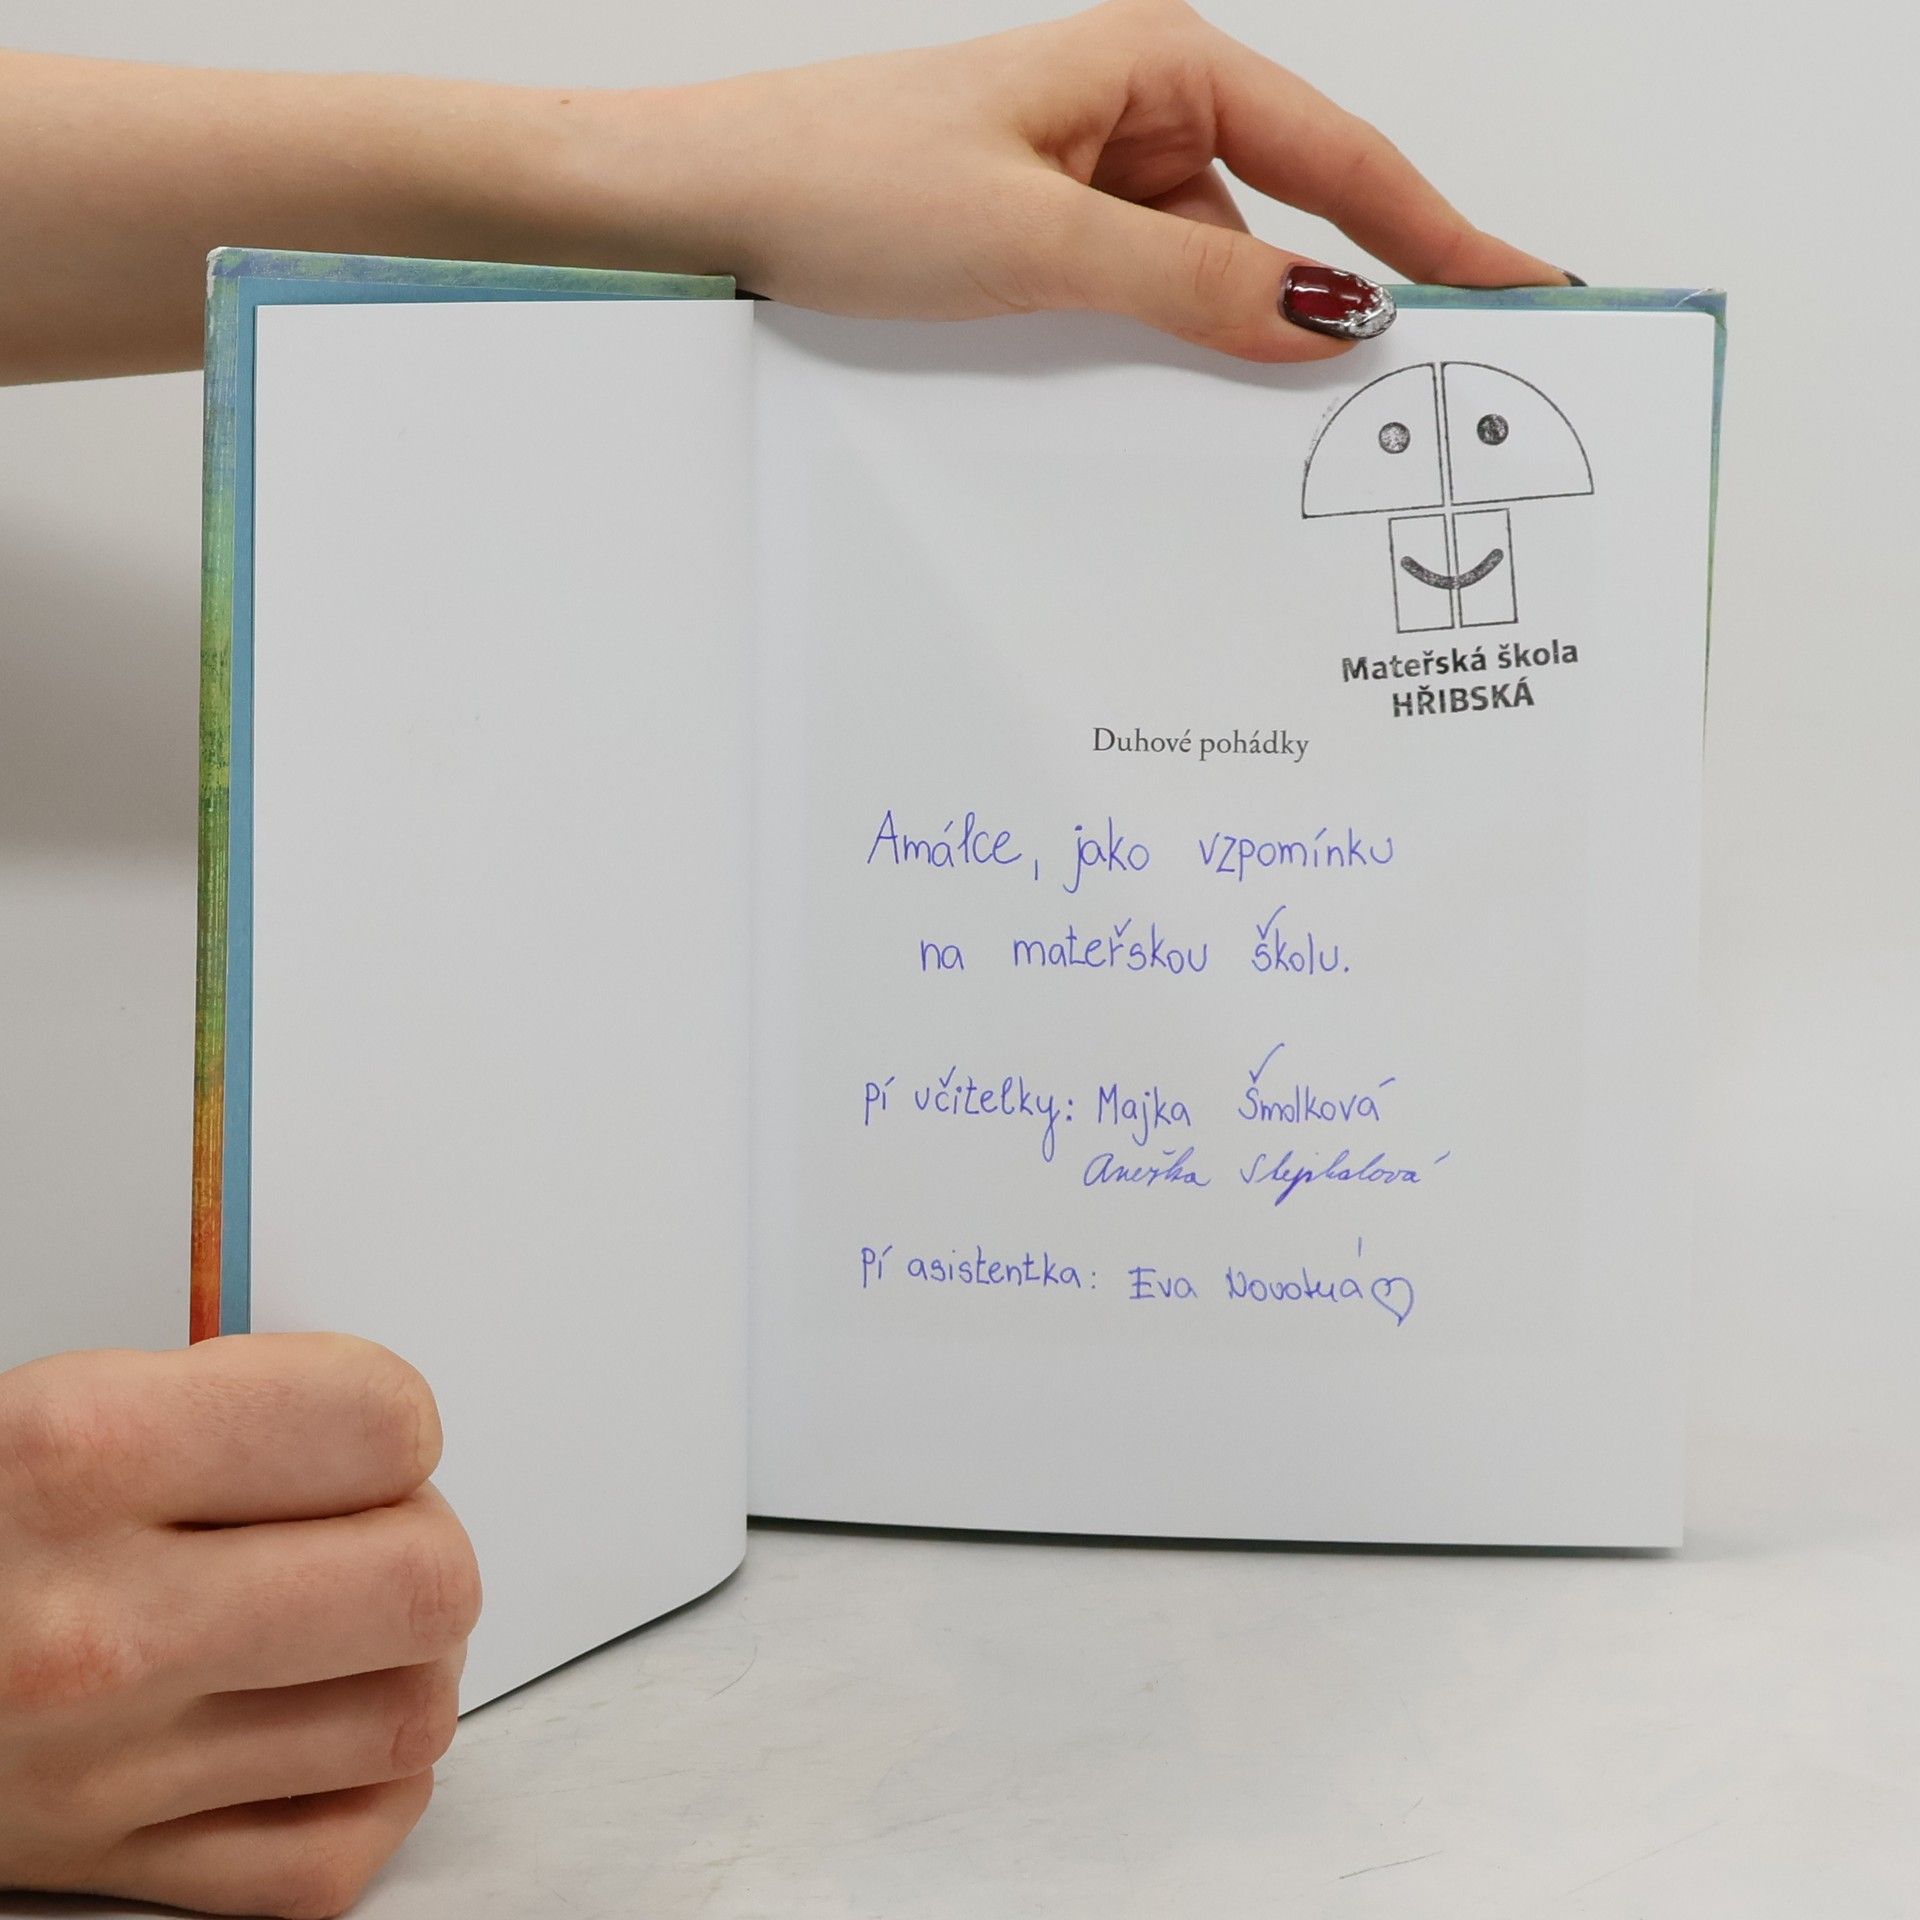 Mateřská škola
HŘIBSKÁ
Duhové pohádky
Amálce, jako vzpomínku
na mateřskou školu.
pí učitelky: Majka Šmolková
Anežka Slejhalová
pí asistentka: Eva Novotná